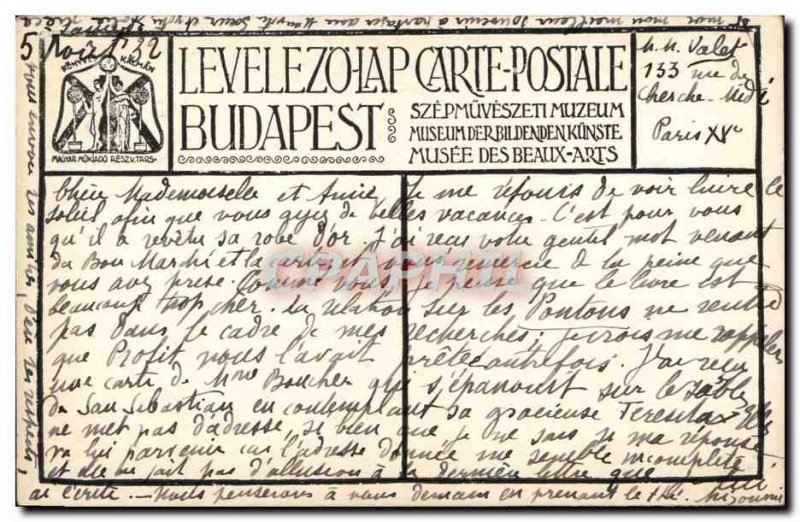 moi mon meilleur souvenir à partager avec votre Sœur et votre
5 Août 32
KÖNYVES KÁLMÁN
MAGYAR MŰKIADÓ RÉSZV. TÁRS.
LEVELEZŐ-LAP CARTE-POSTALE
BUDAPEST
SZÉPMŰVÉSZETI MUZEUM
MUSEUM DER BILDENDEN KÜNSTE
MUSÉE DES BEAUX-ARTS
M. M. Valet
133 rue du
Cherche-Midi
Paris XVe
Chère Mademoiselle et Amie, Je me réjouis de voir luire le
soleil afin que vous ayez de belles vacances. C'est pour vous
qu'il a revêtu sa robe d'or. J'ai reçu votre gentil mot venant
du Bon Marché et la vous remercie de la peine que
vous avez prise. Comme vous, je pense que le livre est
beaucoup trop cher. La relation sur les Pontons ne rentre
pas dans le cadre de mes recherches. Je crois me rappeler
que Profit vous l'avait prêté autrefois. J'ai reçu
une carte de Mme Boucher qui s'épanouit sur le sable
de San Sebastian en contemplant sa gracieuse Teresita. Elle
ne met pas d'adresse, si bien que je ne sais si ma réponse
va lui parvenir car l'adresse donnée me semble incomplète
et elle ne fait pas d'allusion à la dernière lettre que je lui
ai écrite. - Nous penserons à vous demain en prenant le thé.
CPAPHIL